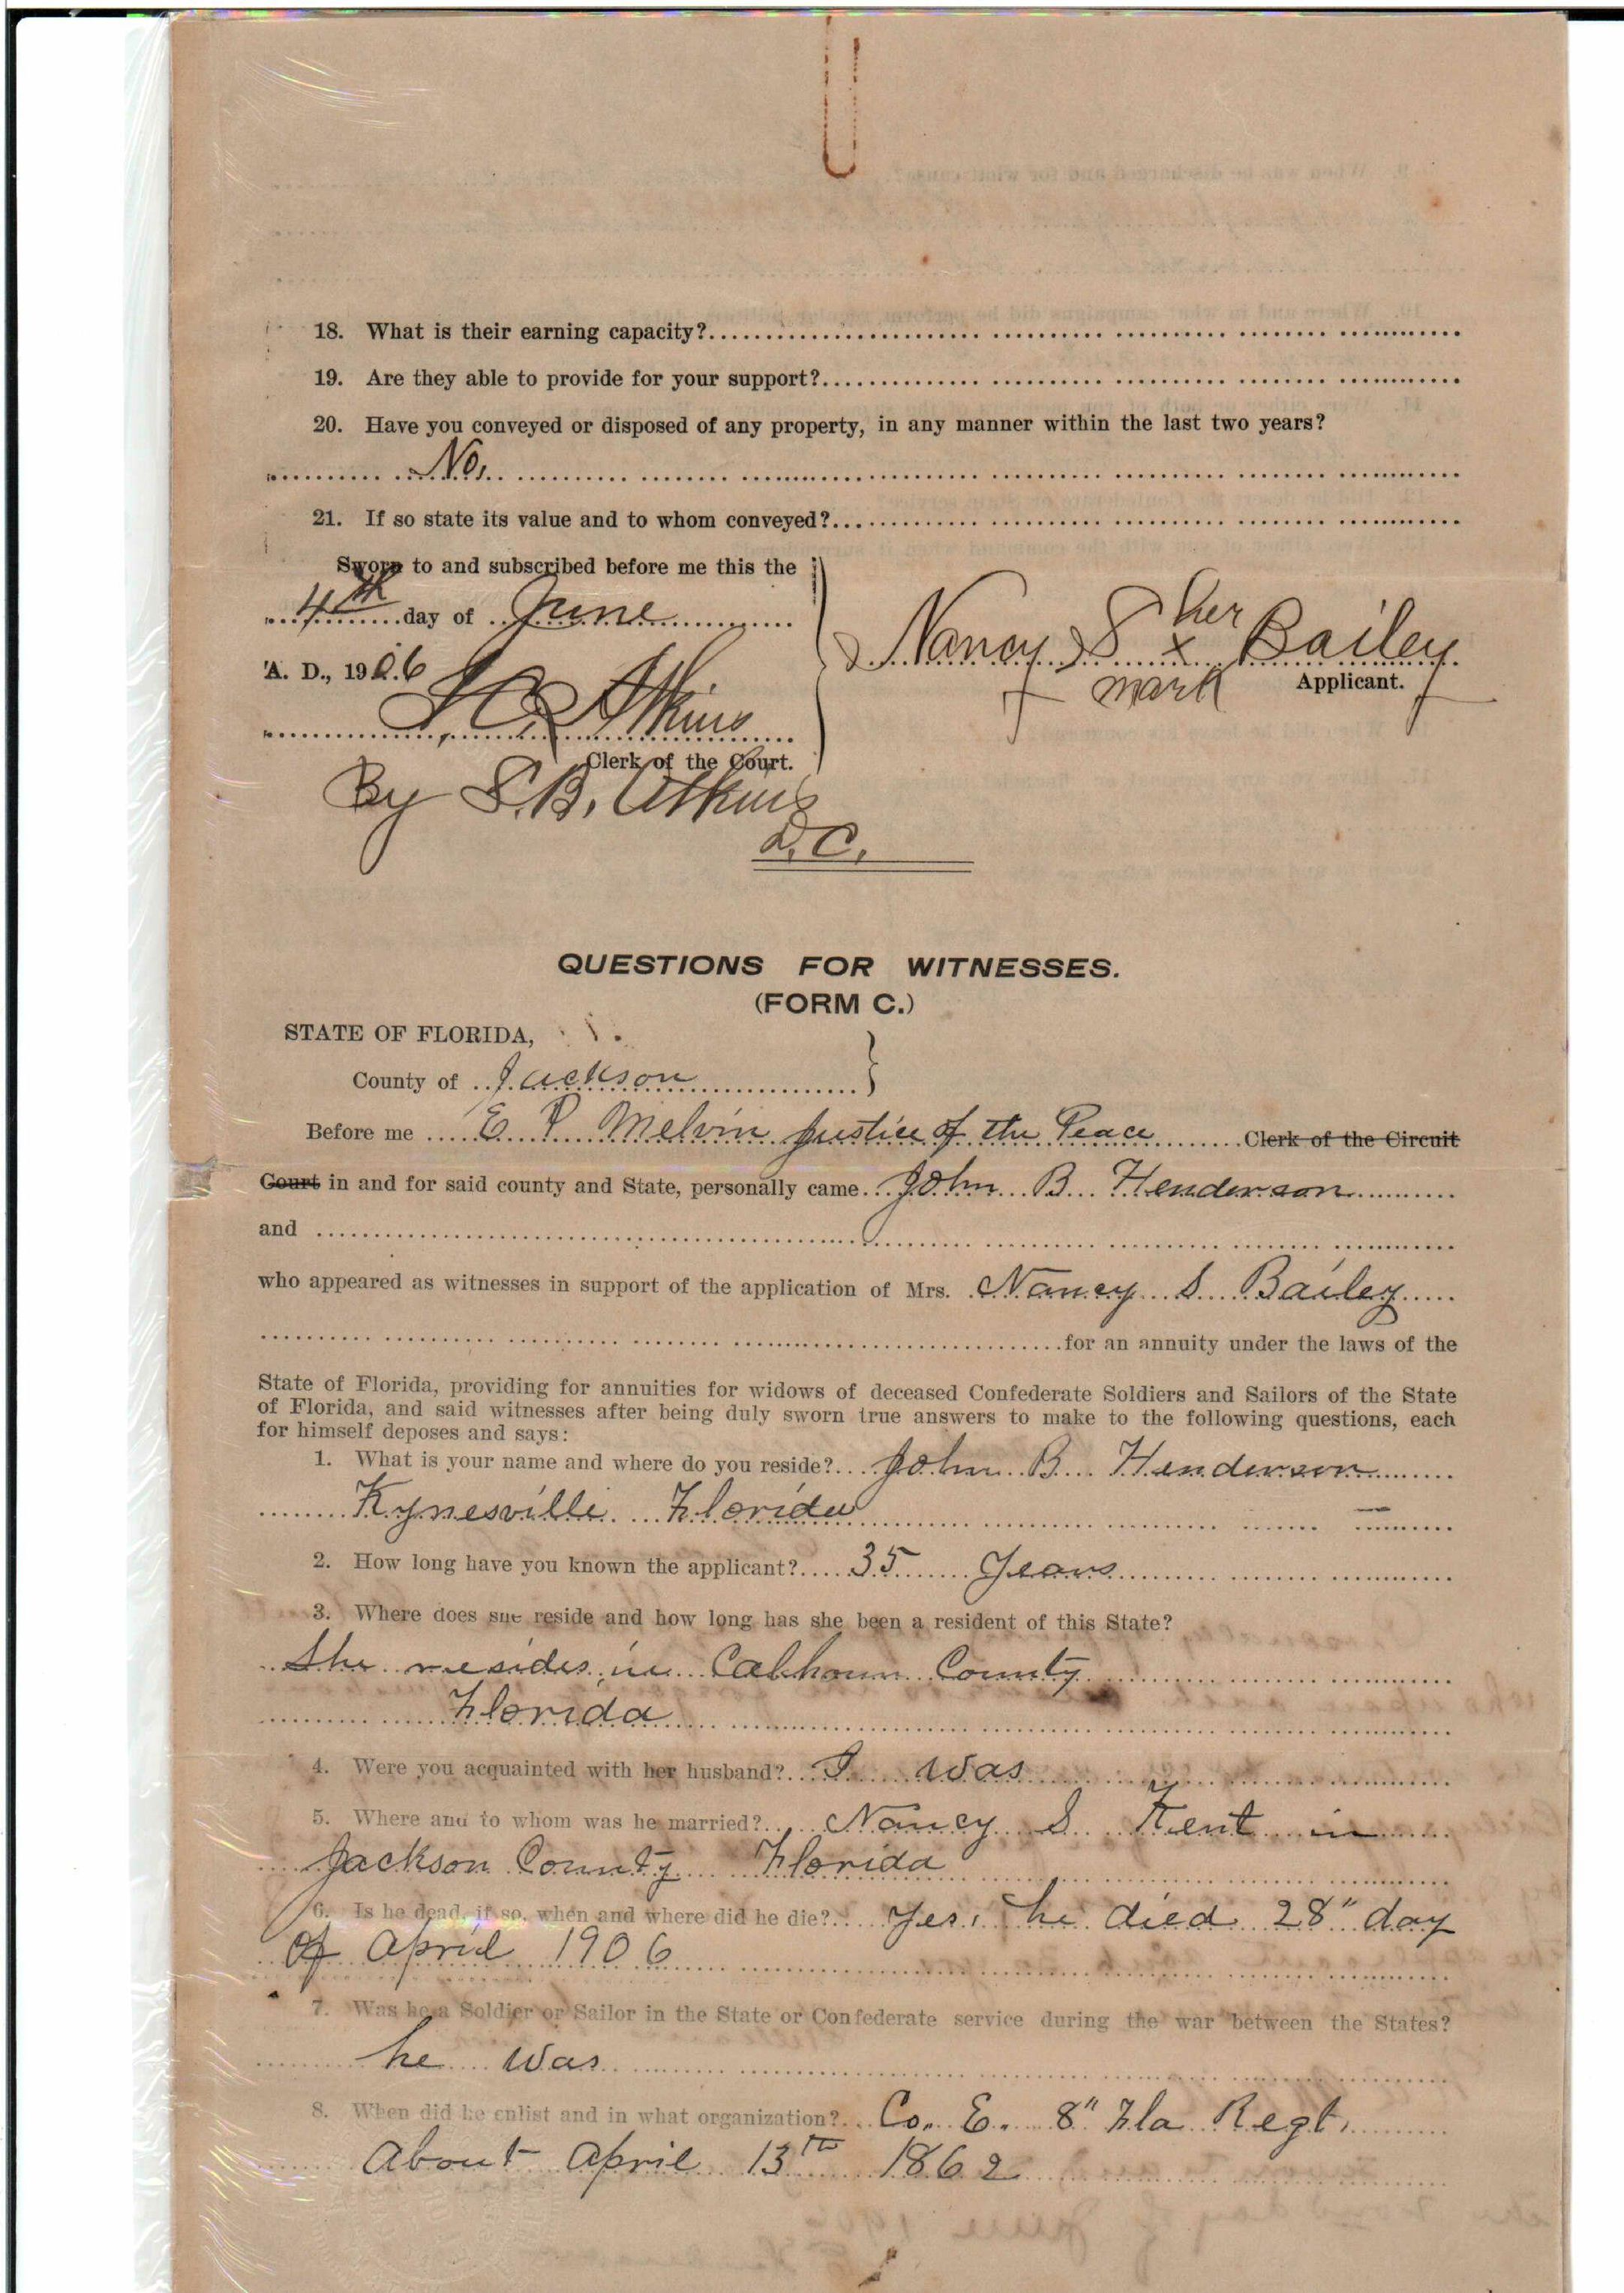 18. What is their earning capacity?
19. Are they able to provide for your support?
20. Have you conveyed or disposed of any property, in any manner within the last two years?
No.
21. If so state its value and to whom conveyed?
Sworn to and subscribed before me this the
4th day of June
A. D., 1906
Nancy S her x Bailey
mark Applicant.
Atkins
Clerk of the Court.
By S. B. Atkins
D. C.
QUESTIONS FOR WITNESSES.
(FORM C.)
STATE OF FLORIDA,
County of Jackson
Before me E P Melvin Justice of the Peace Clerk of the Circuit
Court in and for said county and State, personally came John B Henderson
and
who appeared as witnesses in support of the application of Mrs. Nancy S Bailey
for an annuity under the laws of the
State of Florida, providing for annuities for widows of deceased Confederate Soldiers and Sailors of the State
of Florida, and said witnesses after being duly sworn true answers to make to the following questions, each
for himself deposes and says:
1. What is your name and where do you reside? John B Henderson
Kynesville Florida
2. How long have you known the applicant? 35 Years
3. Where does she reside and how long has she been a resident of this State?
She resides in Calhoun County
Florida
4. Were you acquainted with her husband? I was
5. Where and to whom was he married? Nancy S Kent in
Jackson County Florida
6. Is he dead, if so, when and where did he die? Yes, he died 28" day
of April 1906
7. Was he a Soldier or Sailor in the State or Confederate service during the war between the States?
he was
8. When did he enlist and in what organization? Co. E. 8" Fla Regt.
About April 13th 1862